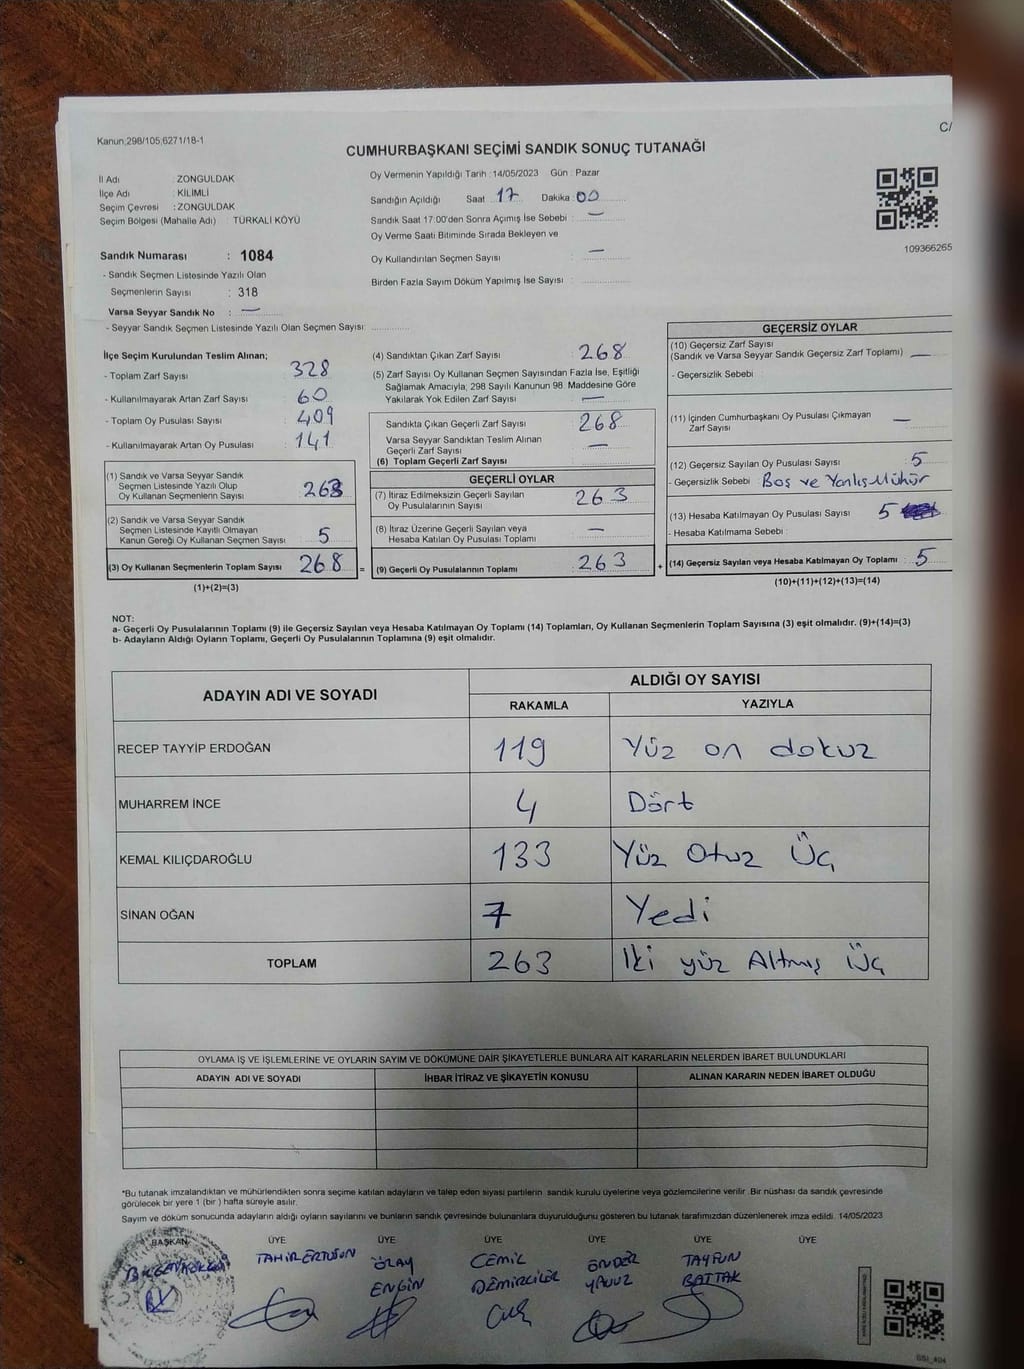 Kanun;298/105,6271/18-1
C/
CUMHURBAŞKANI SEÇİMİ SANDIK SONUÇ TUTANAĞI
İl Adı : ZONGULDAK
İlçe Adı : KİLİMLİ
Seçim Çevresi : ZONGULDAK
Seçim Bölgesi (Mahalle Adı) : TÜRKALİ KÖYÜ
Sandık Numarası : 1084
- Sandık Seçmen Listesinde Yazılı Olan
Seçmenlerin Sayısı : 318
Varsa Seyyar Sandık No : —
- Seyyar Sandık Seçmen Listesinde Yazılı Olan Seçmen Sayısı:
Oy Vermenin Yapıldığı Tarih : 14/05/2023 Gün : Pazar
Sandığın Açıldığı Saat : 17 Dakika : 00
Sandık Saat 17:00'den Sonra Açımış İse Sebebi : —
Oy Verme Saati Bitiminde Sırada Bekleyen ve
Oy Kullandırılan Seçmen Sayısı : —
Birden Fazla Sayım Döküm Yapılmış İse Sayısı :
109366265
İlçe Seçim Kurulundan Teslim Alınan;
- Toplam Zarf Sayısı : 328
- Kullanılmayarak Artan Zarf Sayısı : 60
- Toplam Oy Pusulası Sayısı : 409
- Kullanılmayarak Artan Oy Pusulası : 141
(1) Sandık ve Varsa Seyyar Sandık
Seçmen Listesinde Yazılı Olup
Oy Kullanan Seçmenlerin Sayısı : 263
(2) Sandık ve Varsa Seyyar Sandık
Seçmen Listesinde Kayıtlı Olmayan
Kanun Gereği Oy Kullanan Seçmen Sayısı : 5
(3) Oy Kullanan Seçmenlerin Toplam Sayısı : 268 =
(1)+(2)=(3)
(4) Sandıktan Çıkan Zarf Sayısı : 268
(5) Zarf Sayısı Oy Kullanan Seçmen Sayısından Fazla İse, Eşitliği
Sağlamak Amacıyla; 298 Sayılı Kanunun 98. Maddesine Göre
Yakılarak Yok Edilen Zarf Sayısı : —
Sandıkta Çıkan Geçerli Zarf Sayısı : 268
Varsa Seyyar Sandıktan Teslim Alınan
Geçerli Zarf Sayısı : —
(6) Toplam Geçerli Zarf Sayısı :
GEÇERLİ OYLAR
(7) İtiraz Edilmeksizin Geçerli Sayılan
Oy Pusulalarının Sayısı : 263
(8) İtiraz Üzerine Geçerli Sayılan veya
Hesaba Katılan Oy Pusulası Toplamı : —
(9) Geçerli Oy Pusulalarının Toplamı : 263 +
GEÇERSİZ OYLAR
(10) Geçersiz Zarf Sayısı
(Sandık ve Varsa Seyyar Sandık Geçersiz Zarf Toplamı) : —
- Geçersizlik Sebebi :
(11) İçinden Cumhurbaşkanı Oy Pusulası Çıkmayan
Zarf Sayısı : —
(12) Geçersiz Sayılan Oy Pusulası Sayısı : 5
- Geçersizlik Sebebi : Boş ve Yanlış Mühür
(13) Hesaba Katılmayan Oy Pusulası Sayısı : 5
- Hesaba Katılmama Sebebi :
(14) Geçersiz Sayılan veya Hesaba Katılmayan Oy Toplamı : 5
(10)+(11)+(12)+(13)=(14)
NOT:
a- Geçerli Oy Pusulalarının Toplamı (9) ile Geçersiz Sayılan veya Hesaba Katılmayan Oy Toplamı (14) Toplamları, Oy Kullanan Seçmenlerin Toplam Sayısına (3) eşit olmalıdır. (9)+(14)=(3)
b- Adayların Aldığı Oyların Toplamı, Geçerli Oy Pusulalarının Toplamına (9) eşit olmalıdır.
ADAYIN ADI VE SOYADI
ALDIĞI OY SAYISI
RAKAMLA YAZIYLA
RECEP TAYYİP ERDOĞAN 119 Yüz on dokuz
MUHARREM İNCE 4 Dört
KEMAL KILIÇDAROĞLU 133 Yüz Otuz Üç
SİNAN OĞAN 7 Yedi
TOPLAM 263 İki yüz Altmış Üç
OYLAMA İŞ VE İŞLEMLERİNE VE OYLARIN SAYIM VE DÖKÜMÜNE DAİR ŞİKAYETLERLE BUNLARA AİT KARARLARIN NELERDEN İBARET BULUNDUKLARI
ADAYIN ADI VE SOYADI İHBAR İTİRAZ VE ŞİKAYETİN KONUSU ALINAN KARARIN NEDEN İBARET OLDUĞU
*Bu tutanak imzalandıktan ve mühürlendikten sonra seçime katılan adayların ve talep eden siyasi partilerin sandık kurulu üyelerine veya gözlemcilerine verilir. Bir nüshası da sandık çevresinde
görülecek bir yere 1 (bir ) hafta süreyle asılır.
Sayım ve döküm sonucunda adayların aldığı oyların sayılarını ve bunların sandık çevresinde bulunanlara duyurulduğunu gösteren bu tutanak tarafımızdan düzenlenerek imza edildi. 14/05/2023
BAŞKAN ÜYE ÜYE ÜYE ÜYE ÜYE ÜYE
TAHİR ERTOSUN ÖLAY CEMİL ÖNDER TAYFUN
ENGİN DEMİRCİLER YAVUZ BATTAK